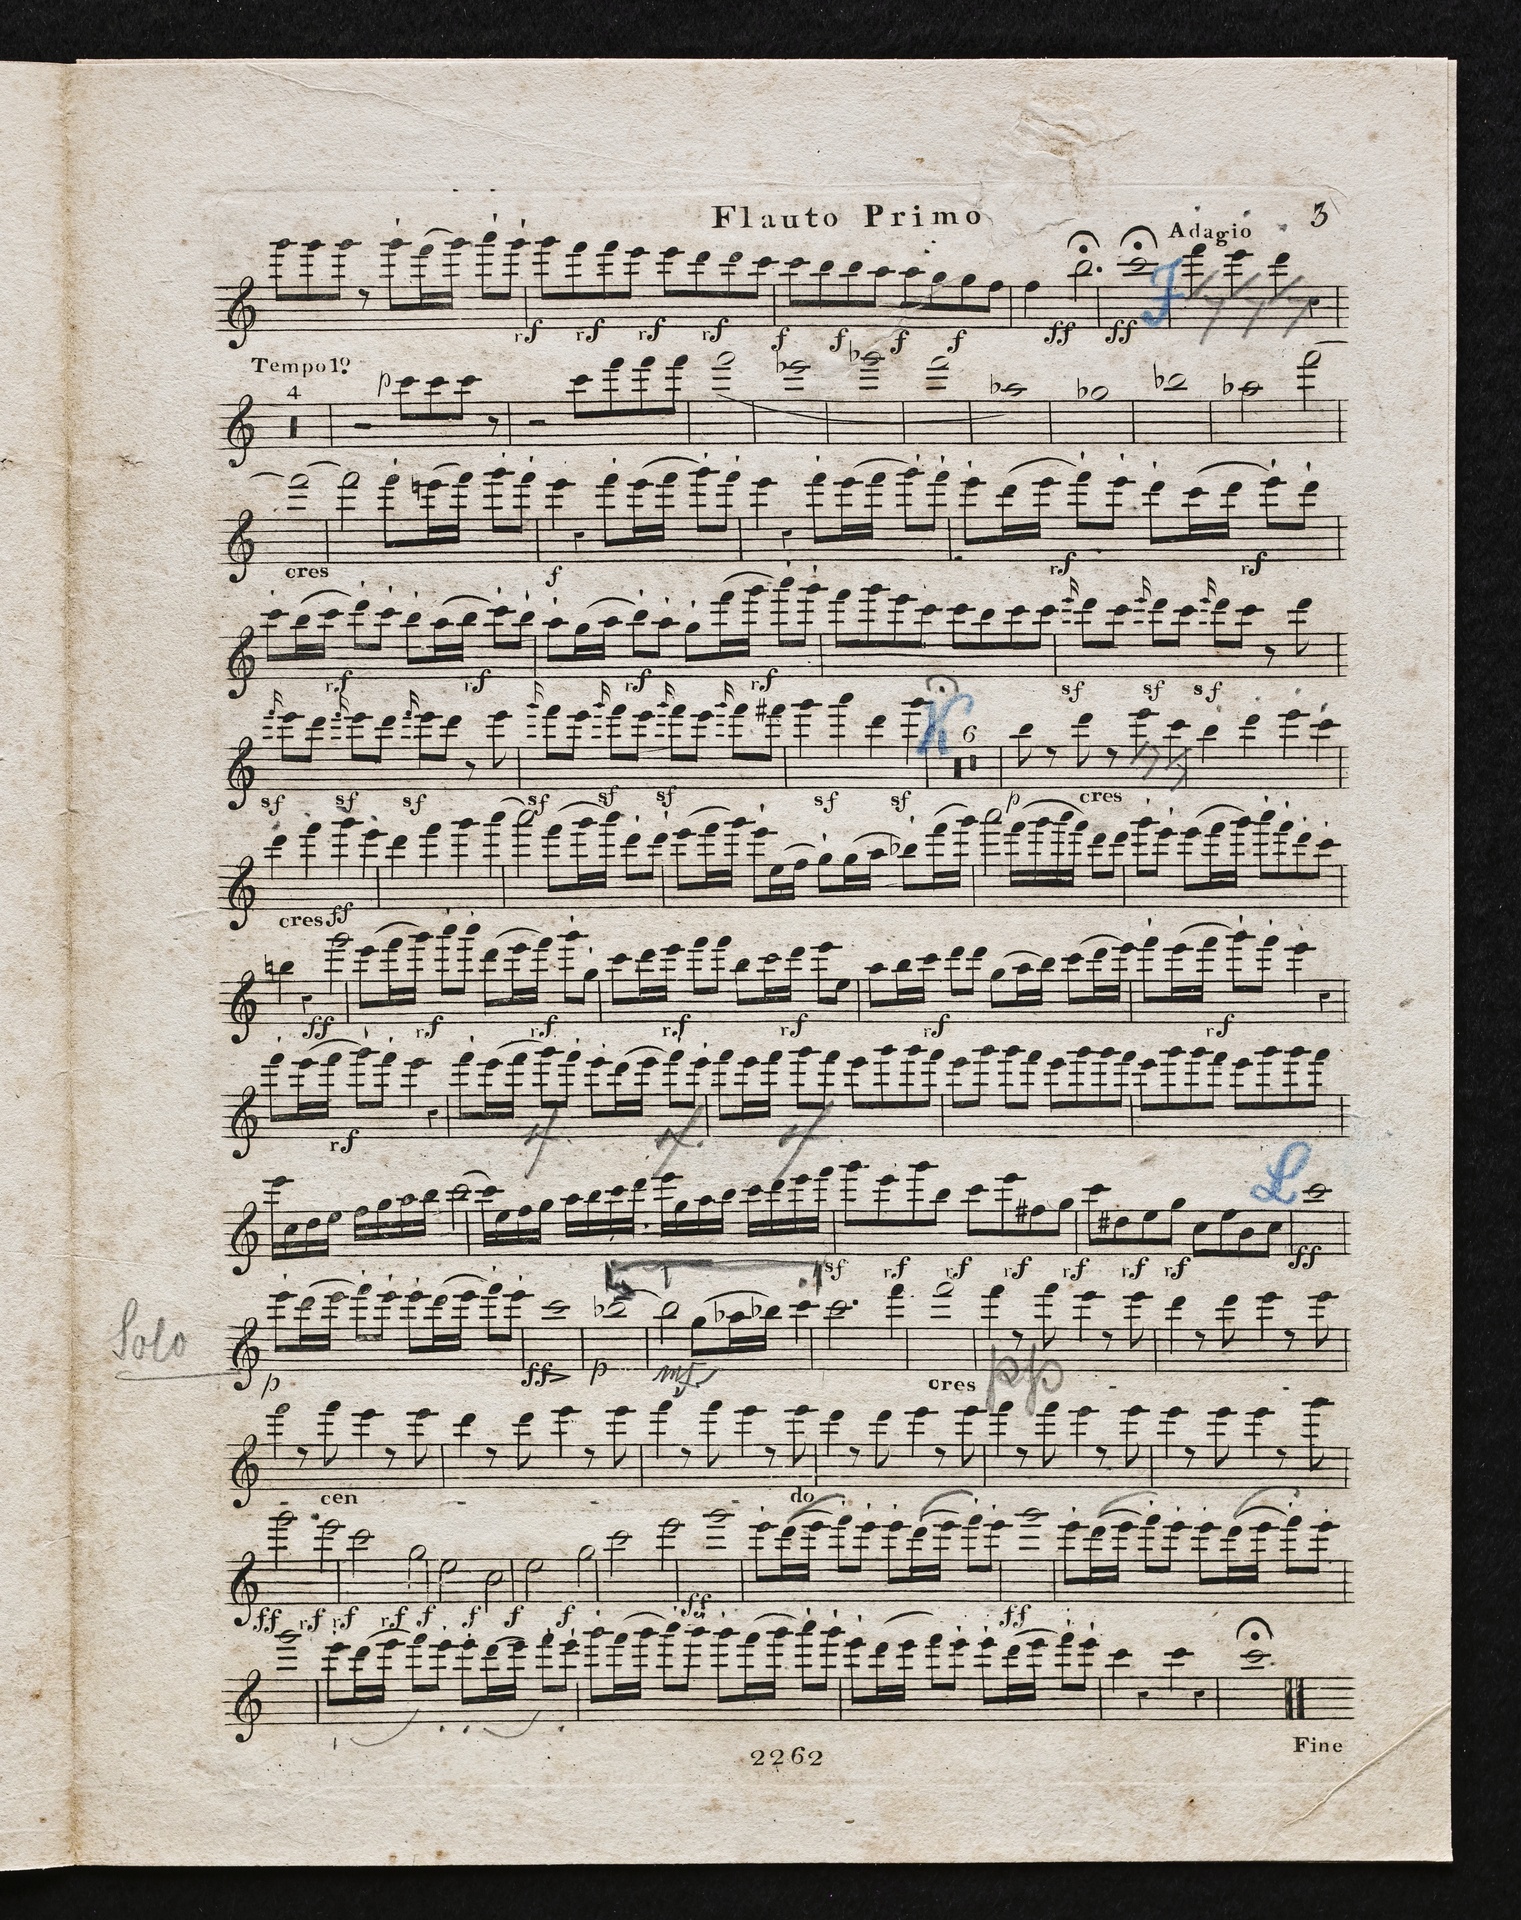 Flauto Primo
3
Adagio
rf rf rf rf f f f f ff ff
J
Tempo 1º
4 p
cres f rf rf
rf rf rf rf sf sf sf
K
6
sf sf sf sf sf sf sf sf p cres
cres ff
ff rf rf rf rf rf rf
rf
L
sf rf rf rf rf rf rf ff
Solo
p ff p mf cres pp
cen - - - - do
ff rf rf rf f f f f ff ff
2262
Fine